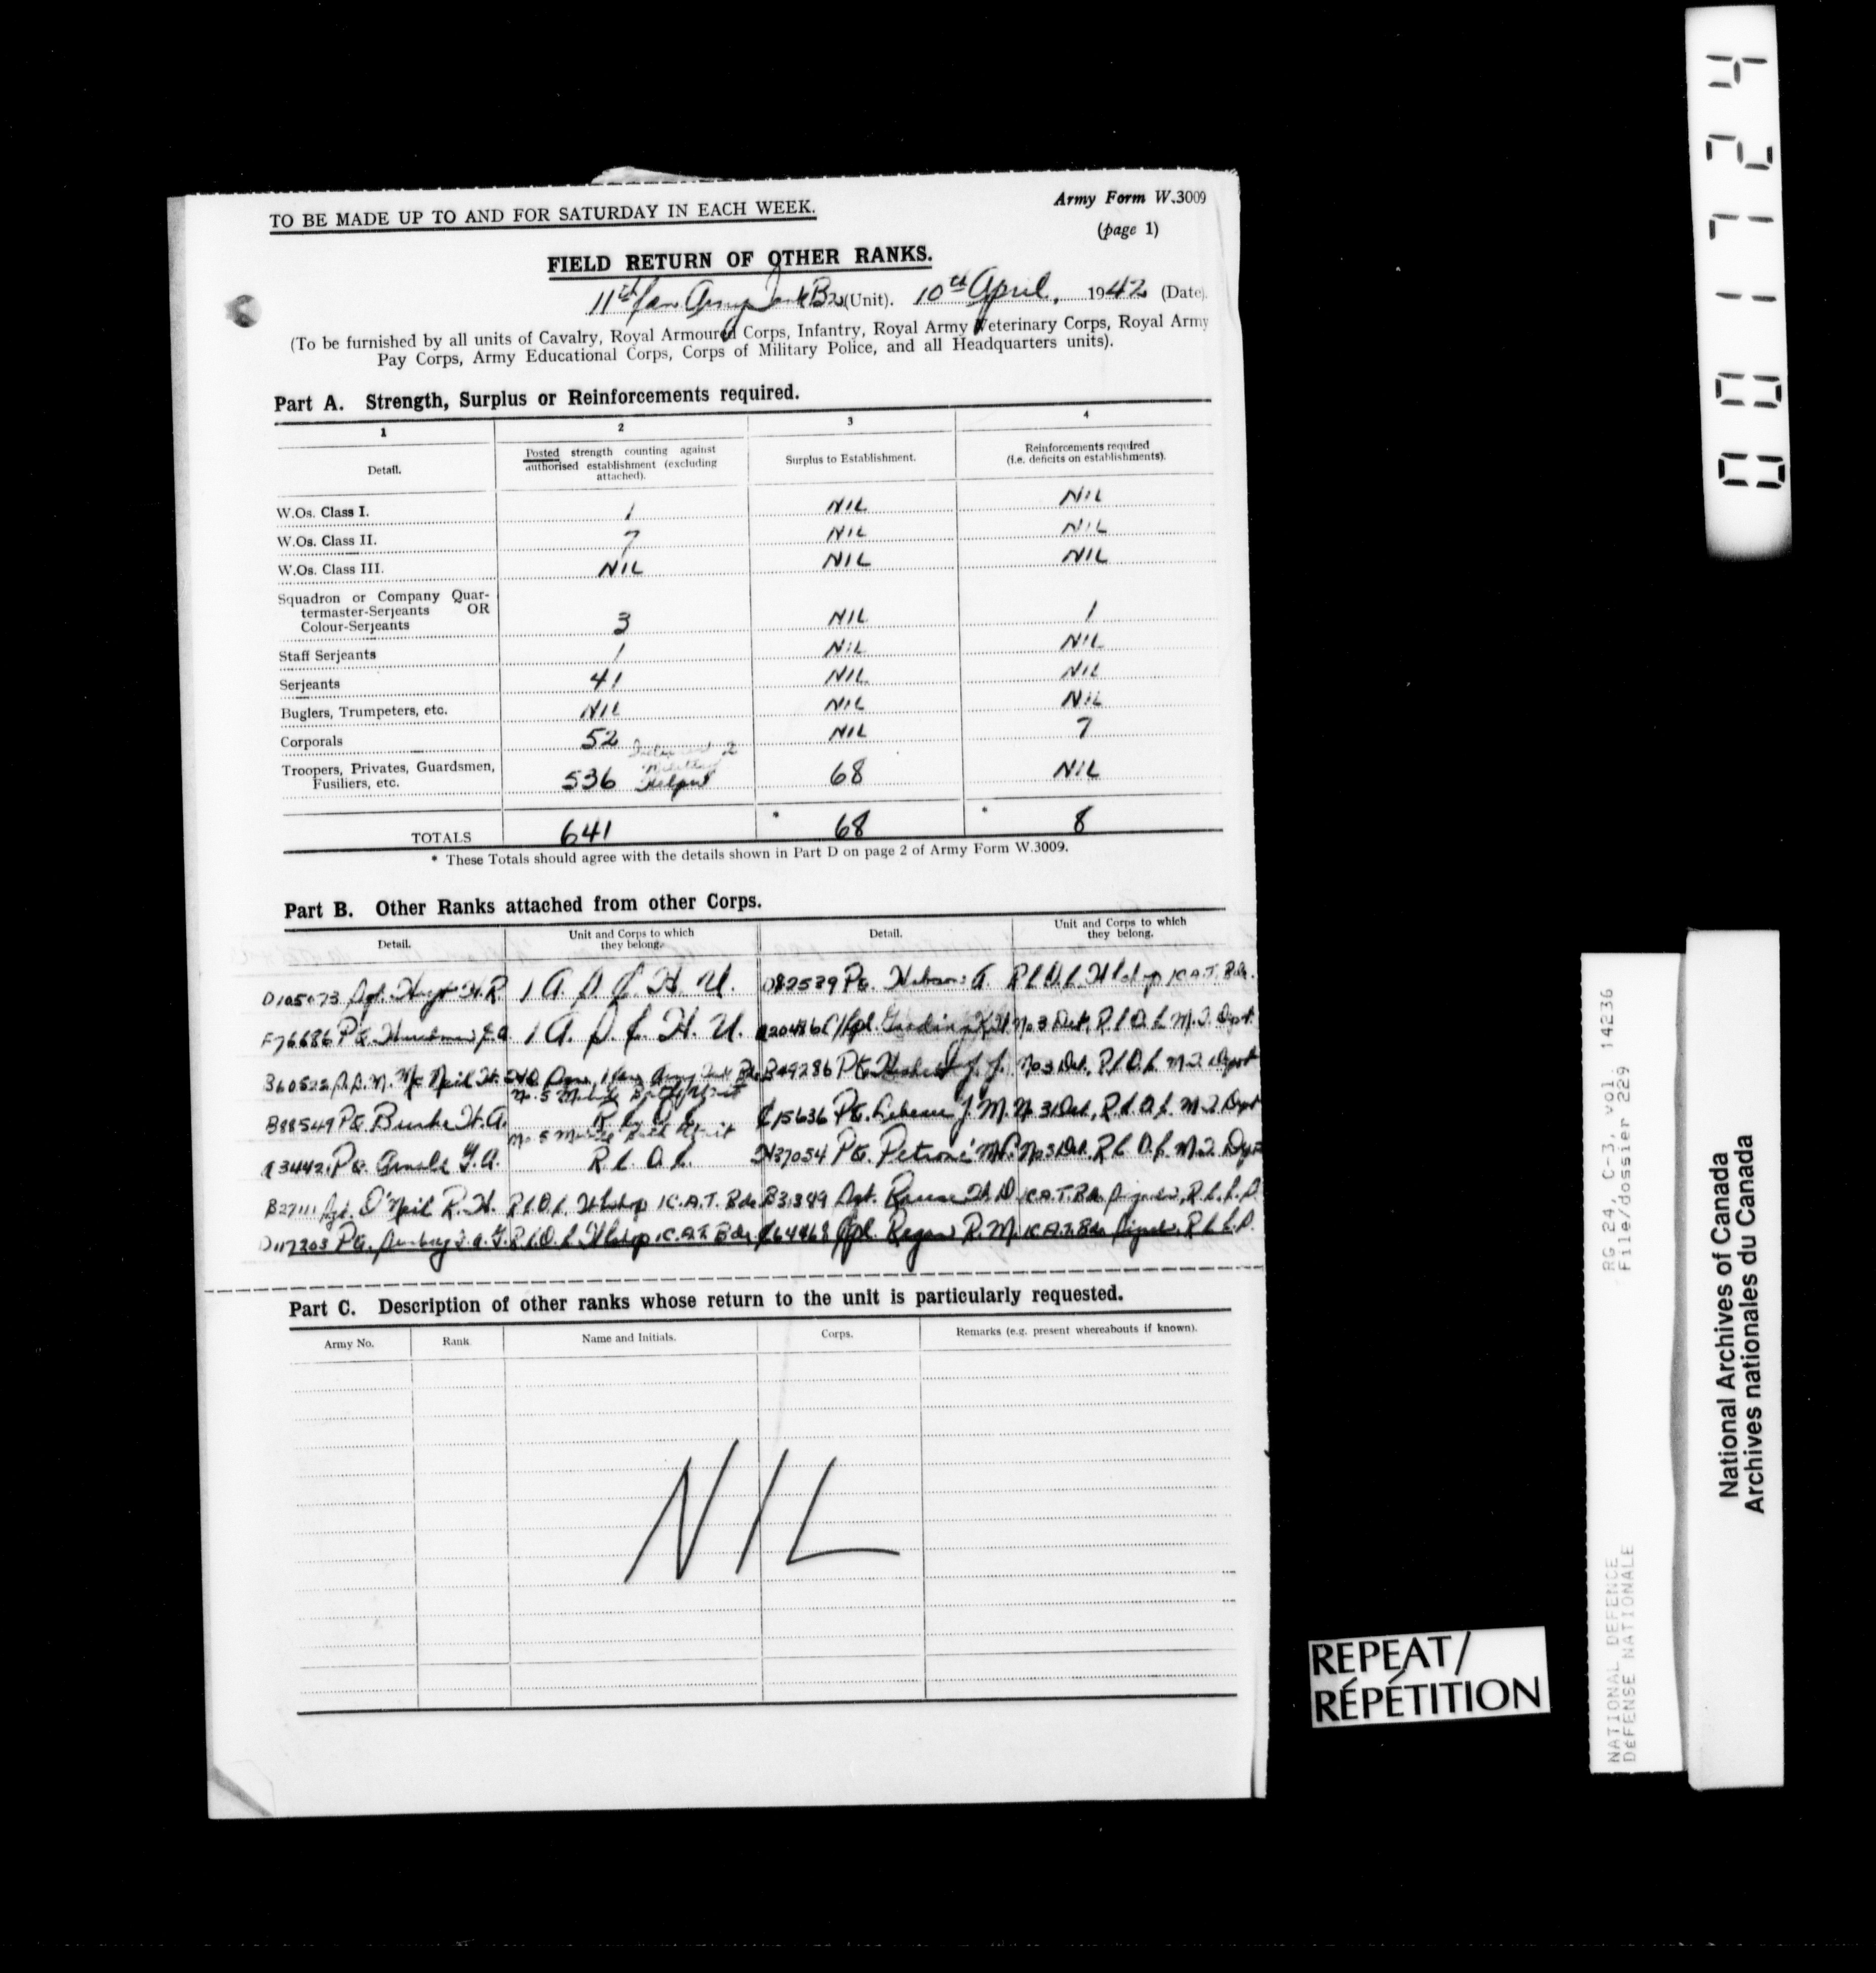 TO BE MADE UP TO AND FOR SATURDAY IN EACH WEEK.
Army Form W.3009
(page 1)
FIELD RETURN OF OTHER RANKS.
11th Can Army Tank Bn (Unit). 10th April, 1942 (Date).
(To be furnished by all units of Cavalry, Royal Armoured Corps, Infantry, Royal Army Veterinary Corps, Royal Army
Pay Corps, Army Educational Corps, Corps of Military Police, and all Headquarters units).
Part A. Strength, Surplus or Reinforcements required.
1 2 3 4
Detail. Posted strength counting against authorised establishment (excluding attached). Surplus to Establishment. Reinforcements required (i.e. deficits on establishments).
W.Os. Class I. 1 NIL NIL
W.Os. Class II. 7 NIL NIL
W.Os. Class III. NIL NIL NIL
Squadron or Company Quar-
termaster-Serjeants OR
Colour-Serjeants 3 NIL 1
Staff Serjeants 1 NIL NIL
Serjeants 41 NIL NIL
Buglers, Trumpeters, etc. NIL NIL NIL
Corporals 52 NIL 7
Troopers, Privates, Guardsmen,
Fusiliers, etc. 536 68 NIL
TOTALS 641 * 68 * 8
* These Totals should agree with the details shown in Part D on page 2 of Army Form W.3009.
Part B. Other Ranks attached from other Corps.
Detail. Unit and Corps to which they belong. Detail. Unit and Corps to which they belong.
Sgt. H.R. 1 A. D. C. H. U. D82539 Pte. A. R.C.O.C. 1 C.A.T. Bde.
F76686 Pte. 1 A. D. C. H. U. Cpl. No 3 Det, R.C.O.C. M.T. Depot
B60522 McNeil 1 Can Army Tank Bde B49286 Pte. J. J. No 3 Det, R.C.O.C. M.T. Depot
No. 5 Mobile Bath Unit
B88549 Pte. Burke H.A. R.C.O.C. C15636 Pte. J. M. No 3 Det, R.C.O.C. M.T. Dept
No 5 Mobile Bath Unit
Pte. Arnold G.A. R.C.O.C. H37054 Pte. Petroni No 3 Det. R.C.O.C. M.T. Dept
B27111 Sgt. O'Neil R.H. R.C.O.C. 1 C.A.T. Bde Sgt. 1 C.A.T. Bde Signals, R.C.C.S.
D117203 Pte. R.C.O.C. 1 C.A.T. Bde. C64468 Cpl. Regan R.M. 1 C.A.T. Bde Signals, R.C.C.S.
Part C. Description of other ranks whose return to the unit is particularly requested.
Army No. Rank Name and Initials. Corps. Remarks (e.g. present whereabouts if known).
NIL
001724
RG 24, C-3, vol. 14236
File/dossier 229
NATIONAL DEFENCE
DÉFENSE NATIONALE
National Archives of Canada
Archives nationales du Canada
REPEAT/
RÉPÉTITION